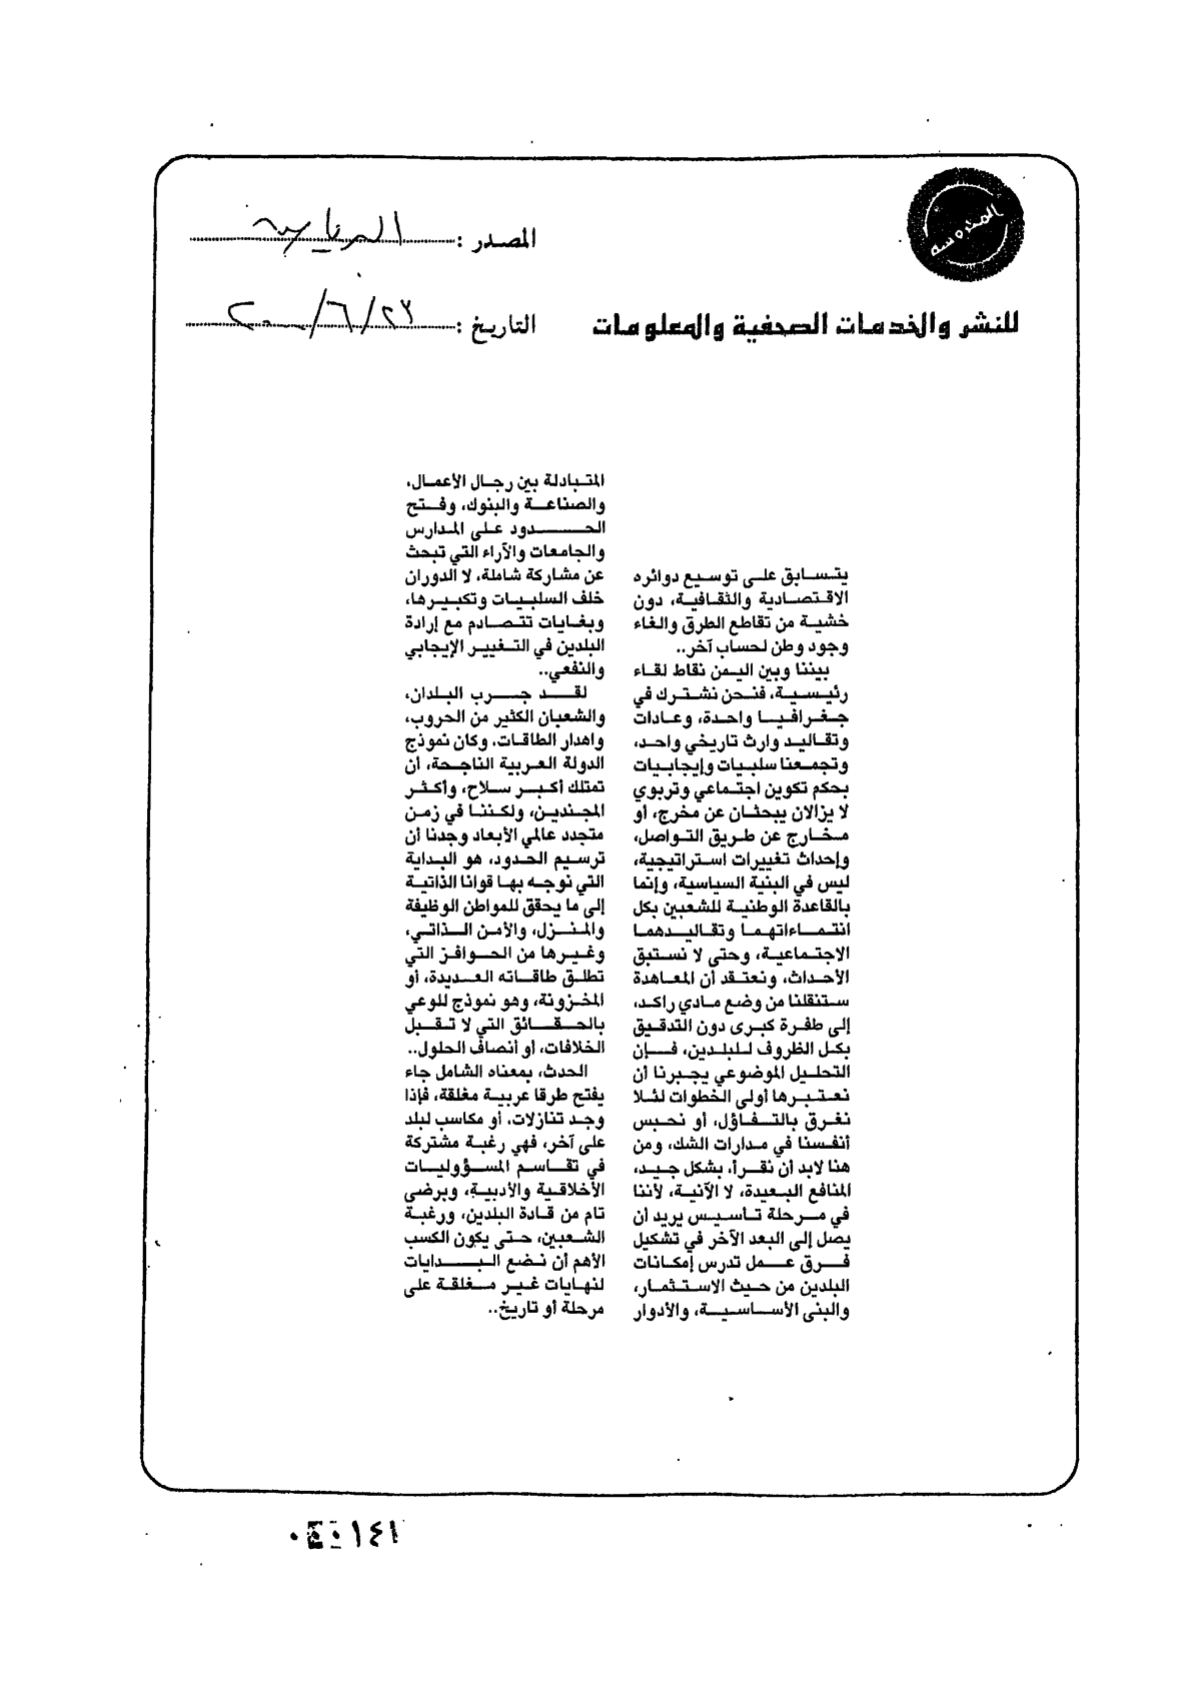 المحروسة
المصدر : الرياض
للنشر والخدمات الصحفية والمعلومات
التاريخ : ٢٣/٦/٢٠٠٠
يتسابق على توسيع دوائره
الاقتصادية والثقافية، دون
خشية من تقاطع الطرق والغاء
وجود وطن لحساب آخر..
بيننا وبين اليمن نقاط لقاء
رئيسية، فنحن نشترك في
جغرافيا واحدة، وعادات
وتقاليد وارث تاريخي واحد،
وتجمعنا سلبيات وإيجابيات
بحكم تكوين اجتماعي وتربوي
لا يزالان يبحثان عن مخرج، أو
مخارج عن طريق التواصل،
وإحداث تغييرات استراتيجية،
ليس في البنية السياسية، وإنما
بالقاعدة الوطنية للشعبين بكل
انتماءاتهما وتقاليدهما
الاجتماعية، وحتى لا نستبق
الأحداث، ونعتقد أن المعاهدة
ستنقلنا من وضع مادي راكد،
إلى طفرة كبرى دون التدقيق
بكل الظروف للبلدين، فإن
التحليل الموضوعي يجبرنا أن
نعتبرها أولى الخطوات لئلا
نغرق بالتفاؤل، أو نحبس
أنفسنا في مدارات الشك، ومن
هنا لابد أن نقرأ، بشكل جيد،
المنافع البعيدة، لا الآنية، لأننا
في مرحلة تأسيس يريد أن
يصل إلى البعد الآخر في تشكيل
فرق عمل تدرس إمكانات
البلدين من حيث الاستثمار،
والبنى الأساسية، والأدوار
المتبادلة بين رجال الأعمال،
والصناعة والبنوك، وفتح
الحدود على المدارس
والجامعات والآراء التي تبحث
عن مشاركة شاملة، لا الدوران
خلف السلبيات وتكبيرها،
وبغايات تتصادم مع إرادة
البلدين في التغيير الإيجابي
والنفعي..
لقد جرب البلدان،
والشعبان الكثير من الحروب،
واهدار الطاقات، وكان نموذج
الدولة العربية الناجحة، أن
تمتلك أكبر سلاح، وأكثر
المجندين، ولكننا في زمن
متجدد عالمي الأبعاد وجدنا أن
ترسيم الحدود، هو البداية
التي نوجه بها قوانا الذاتية
إلى ما يحقق للمواطن الوظيفة
والمنزل، والأمن الذاتي،
وغيرها من الحوافز التي
تطلق طاقاته العديدة، أو
المخزونة، وهو نموذج للوعي
بالحقائق التي لا تقبل
الخلافات، أو أنصاف الحلول..
الحدث، بمعناه الشامل جاء
يفتح طرقا عربية مغلقة، فإذا
وجد تنازلات، أو مكاسب لبلد
على آخر، فهي رغبة مشتركة
في تقاسم المسؤوليات
الأخلاقية والأدبية، وبرضى
تام من قادة البلدين، ورغبة
الشعبين، حتى يكون الكسب
الأهم أن نضع البدايات
لنهايات غير مغلقة على
مرحلة أو تاريخ..